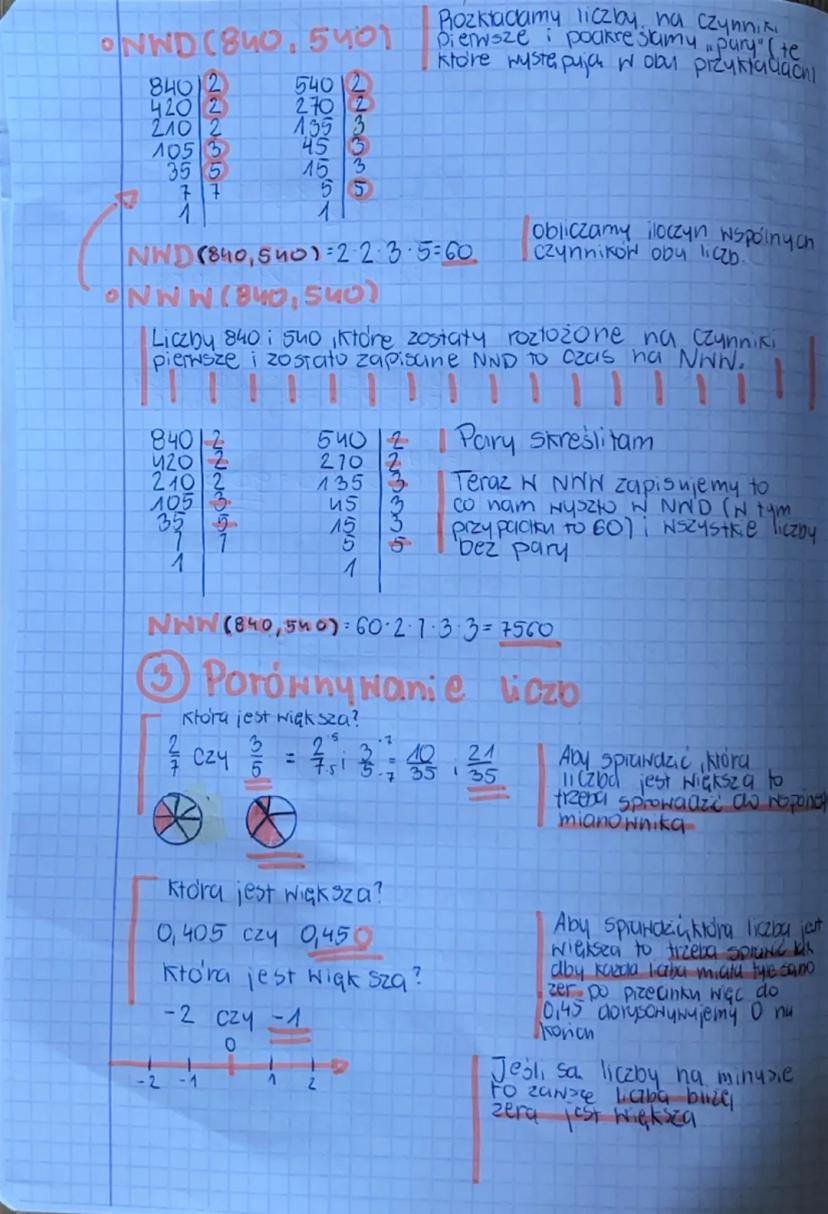 NWD (840, 540)
Rozkładamy liczby na czynniki
pierwsze i podkreślamy „pary" (te
które występują w obu przykładach)
840 | 2 540 | 2
420 | 2 270 | 2
210 | 2 135 | 3
105 | 3 45 | 3
35 | 5 15 | 3
7 | 7 5 | 5
1 | 1 |
NWD (840, 540) = 2·2·3·5 = 60
obliczamy iloczyn wspólnych
czynników obu liczb.
NWW (840, 540)
Liczby 840 i 540, które zostały rozłożone na czynniki
pierwsze i zostało zapisane NWD to czas na NWW.
840 | 2 540 | 2
420 | 2 270 | 2
210 | 2 135 | 3
105 | 3 45 | 3
35 | 5 15 | 3
7 | 7 5 | 5
1 | 1 |
Pary skreśliłam
Teraz w NWW zapisujemy to
co nam wyszło w NWD (w tym
przypadku to 60) i wszystkie liczby
bez pary
NWW (840, 540) = 60·2·7·3·3 = 7560
3 Porównywanie liczb
Która jest większa?
2/7 czy 3/5 = 2·5/7·5 i 3·7/5·7 = 10/35 i 21/35
Aby sprawdzić, która
liczba jest większa to
trzeba sprowadzić do wspólnego
mianownika
Która jest większa?
0,405 czy 0,450
Aby sprawdzić, która liczba jest
większa to trzeba
aby każda liczba miała tyle samo
zer po przecinku więc do
0,45 dorysowywujemy 0 na
końcu
Która jest większa?
-2 czy -1
0
-2 -1 1 2
Jeśli są liczby na minusie
to zawsze liczba bliżej
zera jest większa